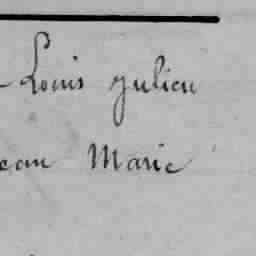 Louis Julien
ean Marie